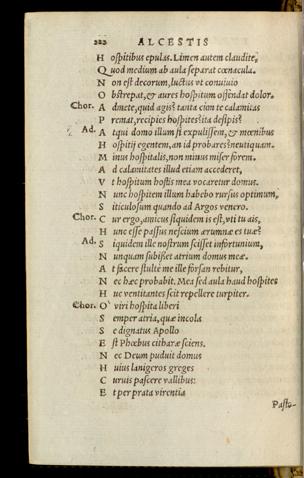 222 ALCESTIS
H ospitibus epulas. Limen autem claudite,
Q uod medium ab aula separat cœnacula.
N on est decorum, luctus ut conuiuio
O bstrepat, & aures hospitum offendat dolor.
Chor. A dmete, quid agis? tanta cum te calamitas
P remat, recipies hospites? ita despis?
Ad. A tqui domo illum si expulissem, & mœnibus
H ospitij egentem, an id probares? neutiquam.
M inus hospitalis, non minus miser forem.
A d calamitates illud etiam accederet,
V t hospitum hostis mea vocaretur domus.
N unc hospitem illum habebo rursus optimum,
S iticulosum quando ad Argos venero.
Chor. C ur ergo, amicus siquidem is est, vti tu ais,
H unc esse passus nescium ærumnæ es tuæ?
Ad. S iquidem ille nostrum scisset infortunium,
N unquam subisset atrium domus meæ.
A t facere stultè me ille forsan rebitur,
N ec hæc probabit. Mea sed aula haud hospites
H uc ventitantes scit repellere turpiter.
Chor. O viri hospita liberi
S emper atria, quæ incola
S e dignatus Apollo
E st Phœbus citharæ sciens.
N ec Deum puduit domus
H uius lanigeros greges
C uruis pascere vallibus:
E t per prata virentia
Pasto-